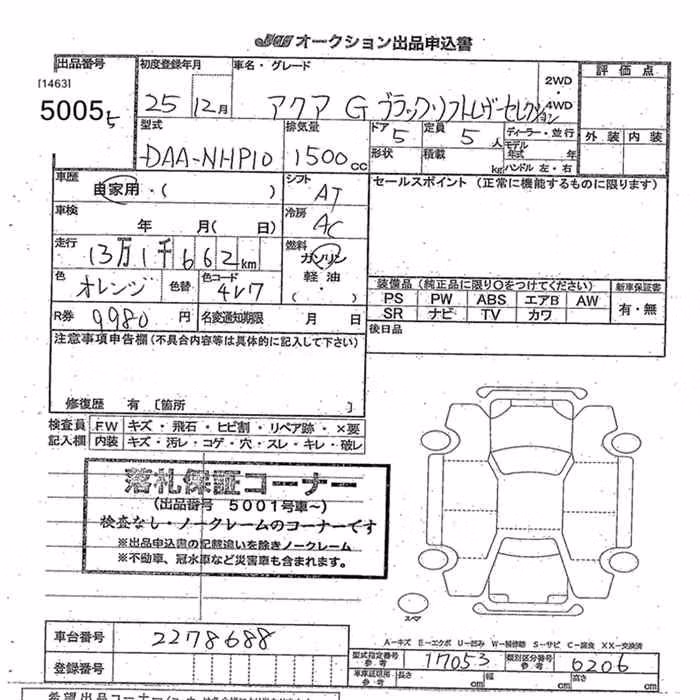 JAA オークション出品申込書
出品番号 初度登録年月 車名・グレード 2WD 評価点
[1463]
50055 25 12月 アクア G ブラックソフトレザーセレクション 4WD
型式 排気量 ドア 定員 ディーラー・並行 外装 内装
DAA-NHP10 1500cc 5 5人 モデル年式 年
形状 積載 kg ハンドル 左・右
車歴 自家用・( ) シフト AT セールスポイント (正常に機能するものに限ります)
車検 年 月( 日) 冷房 AC
走行 13万1千662km 燃料 ガソリン
軽油
(・)
色 オレンジ 色替 色コード 4V7 装備品 (純正品に限り〇をつけてください) 新車保証書
PS PW ABS エアB AW 有・無
R券 9980円 名変通知期限 月 日 SR ナビ TV カワ
注意事項申告欄(不具合内容等は具体的に記入して下さい) 後日品
修復歴 有 [箇所 ]
検査員 FW キズ・飛石・ヒビ割・リペア跡・×要
記入欄 内装 キズ・汚レ・コゲ・穴・スレ・キレ・破レ
落札保証コーナー
(出品番号 5001号車〜)
検査なし・ノークレームのコーナーです
※出品申込書の記載違いを除きノークレーム
※不動車、冠水車など災害車も含まれます。
スペア
A-キズ E-エクボ U-凹み W-補修跡 S-サビ C-腐食 XX-交換済
車台番号 2278688
型式指定番号 参考 17053 類別区分番号 参考 0206
登録番号 車庫証明 参考 長さ cm 幅 cm 高さ cm
希望出品コーナー